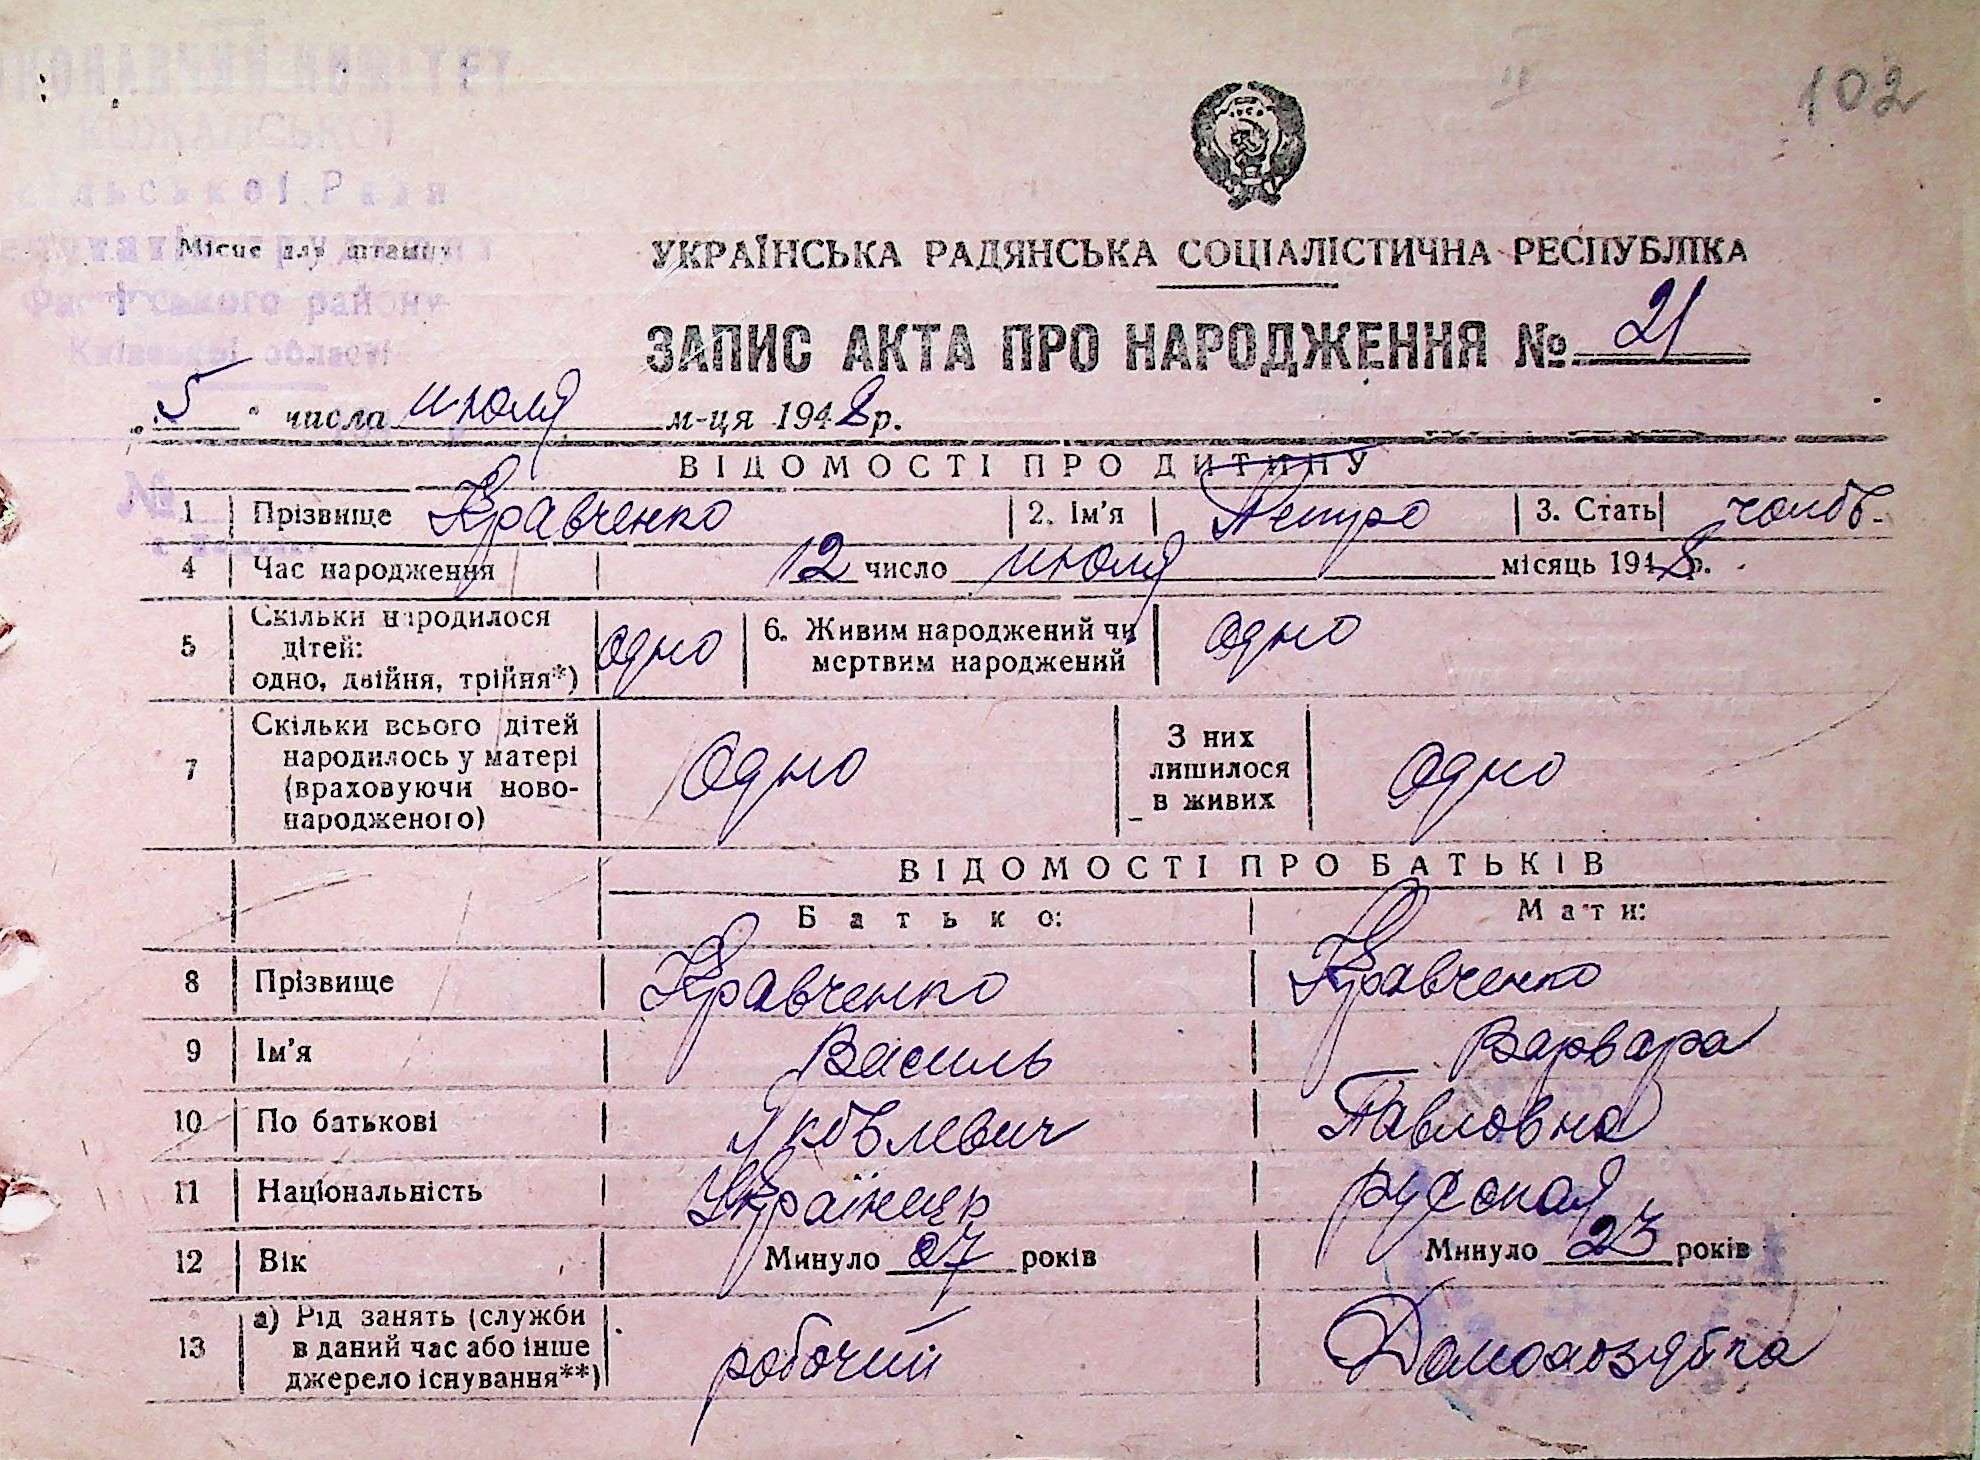 102
ВИКОНАВЧИЙ КОМІТЕТ
сільської Ради
Місце для штампу
Фастівського району
Київської області
УКРАЇНСЬКА РАДЯНСЬКА СОЦІАЛІСТИЧНА РЕСПУБЛІКА
ЗАПИС АКТА ПРО НАРОДЖЕННЯ № 21
„5" числа июля м-ця 1948 р.
ВІДОМОСТІ ПРО ДИТИНУ
№
1 Прізвище Кравченко 2. Ім'я Петро 3. Стать
4 Час народження 12 число июля місяць 1948 р.
5 Скільки народилося дітей: одно, двійня, трійня*) одно 6. Живим народжений чи мертвим народжений одно
7 Скільки всього дітей народилось у матері (враховуючи новонародженого) одно З них лишилося в живих одно
ВІДОМОСТІ ПРО БАТЬКІВ
Батько: Мати:
8 Прізвище Кравченко Кравченко
9 Ім'я Василь Варвара
10 По батькові Яковлевич Павловна
11 Національність Українець русская
12 Вік Минуло 27 років Минуло 23 років
13 а) Рід занять (служби в даний час або інше джерело існування**) робочий Домохозяйка